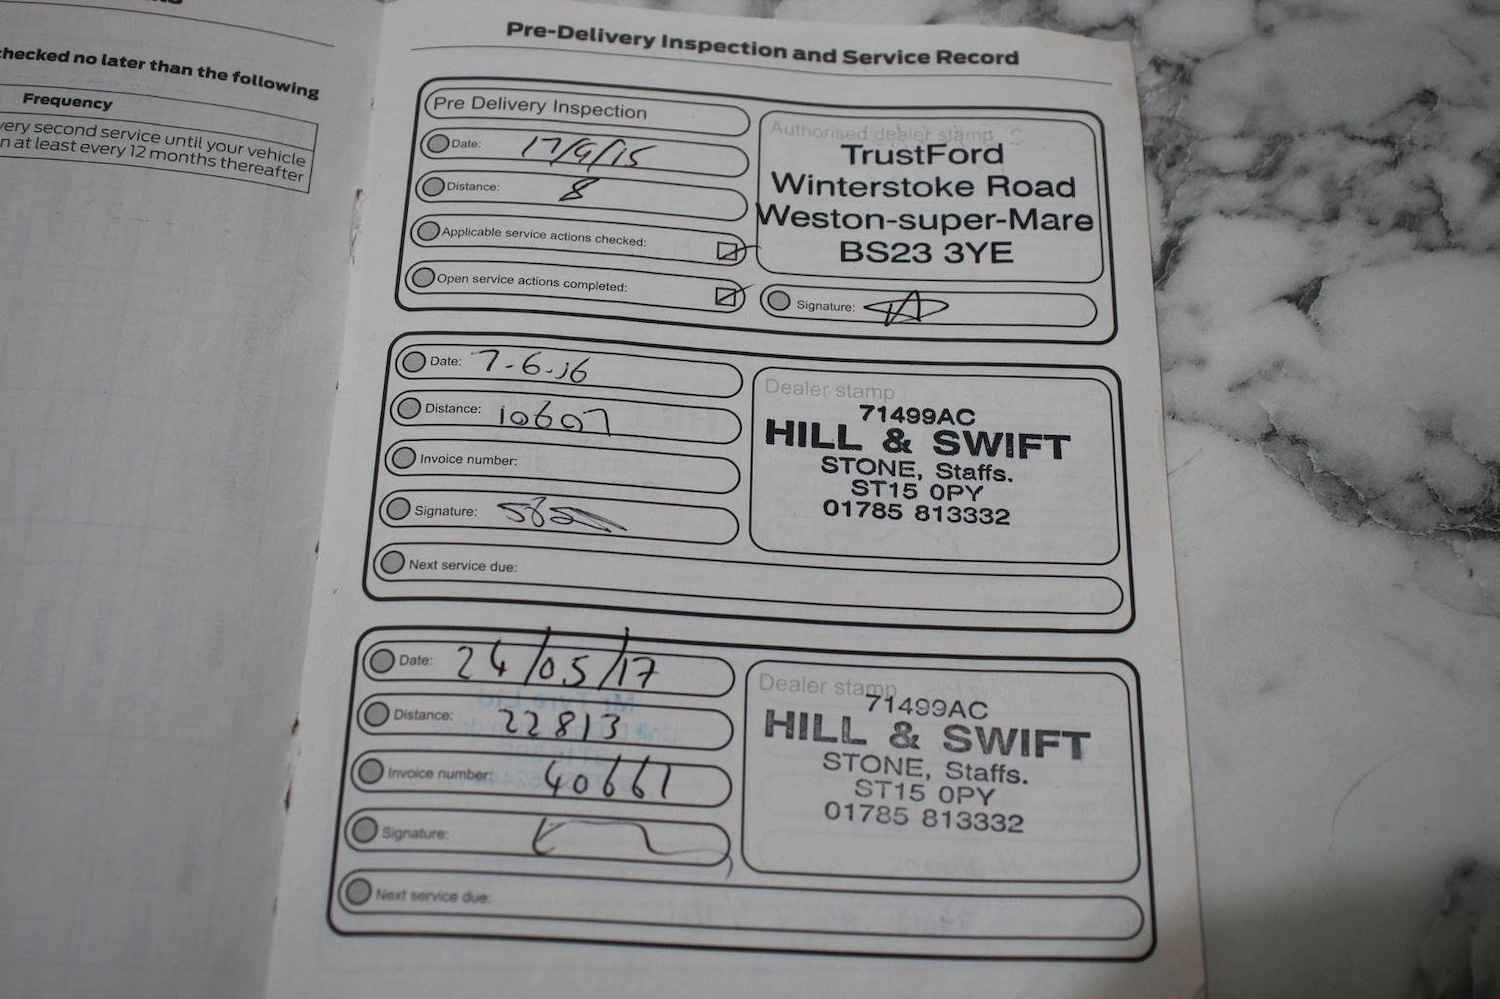 checked no later than the following
Frequency
very second service until your vehicle
n at least every 12 months thereafter
Pre-Delivery Inspection and Service Record
Pre Delivery Inspection
Date: 17/9/15
Distance: 8
Applicable service actions checked:
Open service actions completed:
Authorised dealer stamp
TrustFord
Winterstoke Road
Weston-super-Mare
BS23 3YE
Signature:
Date: 7-6-16
Distance: 10607
Invoice number:
Signature:
Next service due:
Dealer stamp
71499AC
HILL & SWIFT
STONE, Staffs.
ST15 0PY
01785 813332
Date: 24/05/17
Distance: 22813
Invoice number: 40661
Signature:
Next service due:
Dealer stamp
71499AC
HILL & SWIFT
STONE, Staffs.
ST15 0PY
01785 813332